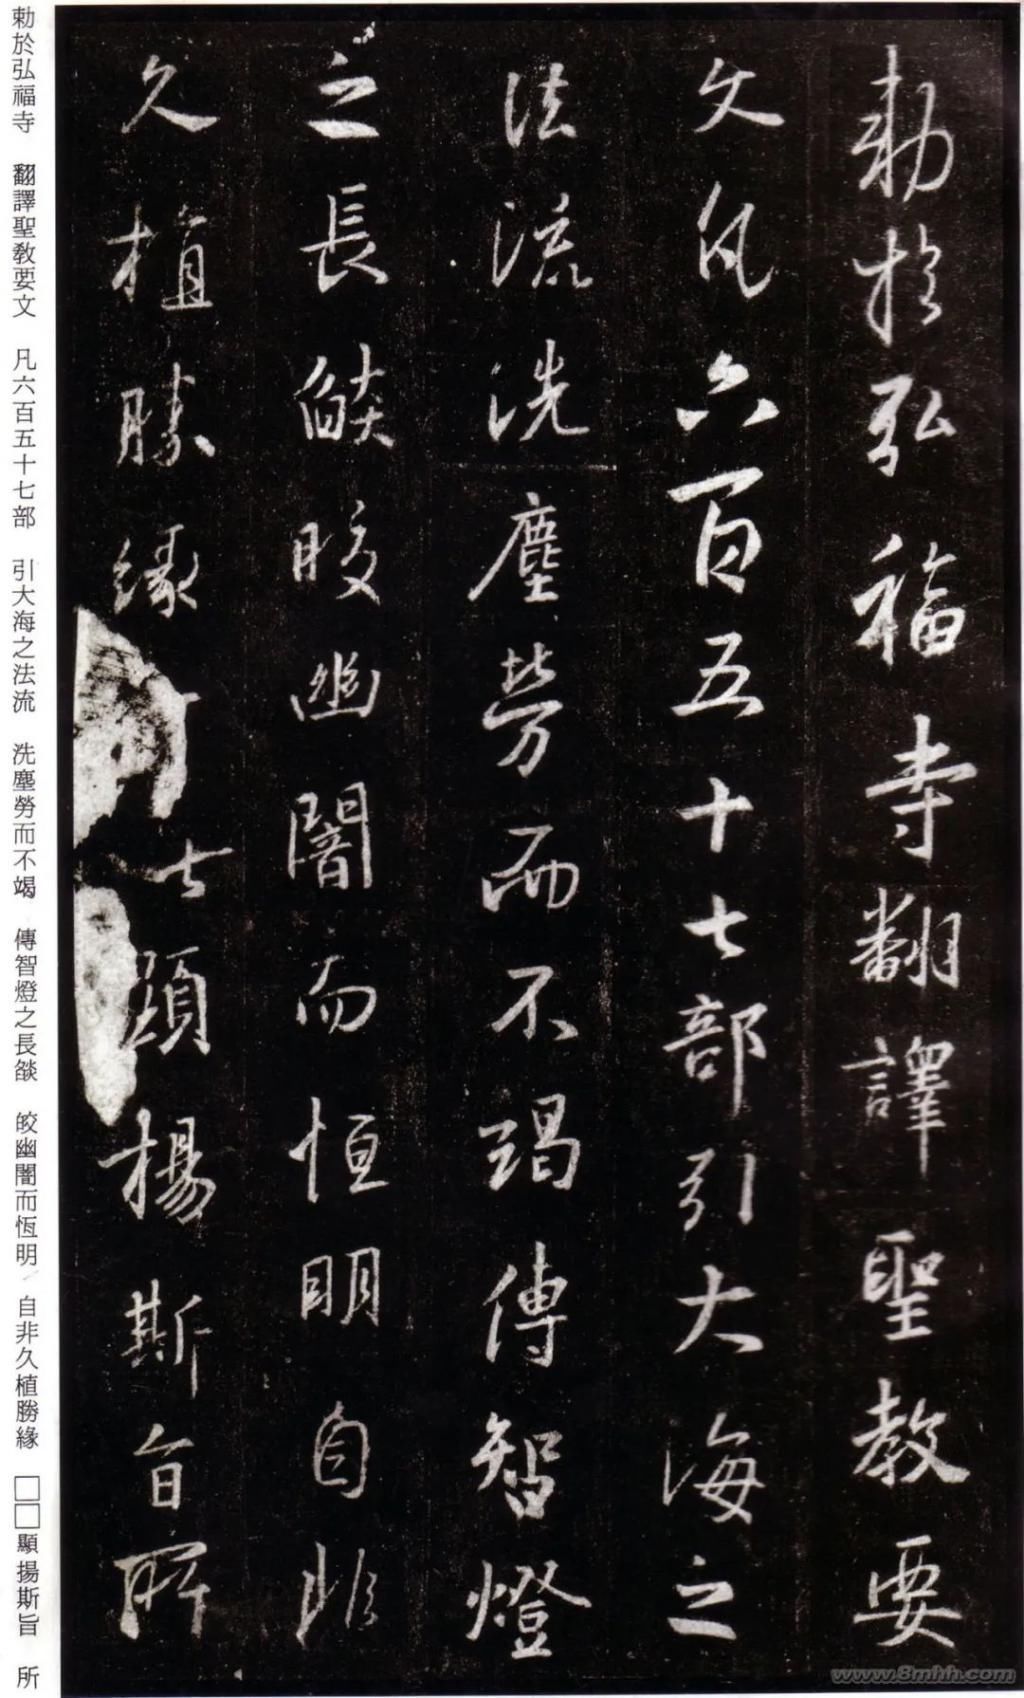 勅於弘福寺翻譯聖教要
文凡六百五十七部引大海之
法流洗塵勞而不竭傳智燈
之長燄皎幽闇而恒明自非
久植勝緣 顯揚斯旨所
勅於弘福寺 翻譯聖教要文 凡六百五十七部 引大海之法流 洗塵勞而不竭 傳智燈之長燄 皎幽闇而恆明 自非久植勝緣 □□顯揚斯旨 所
www.8mhh.com